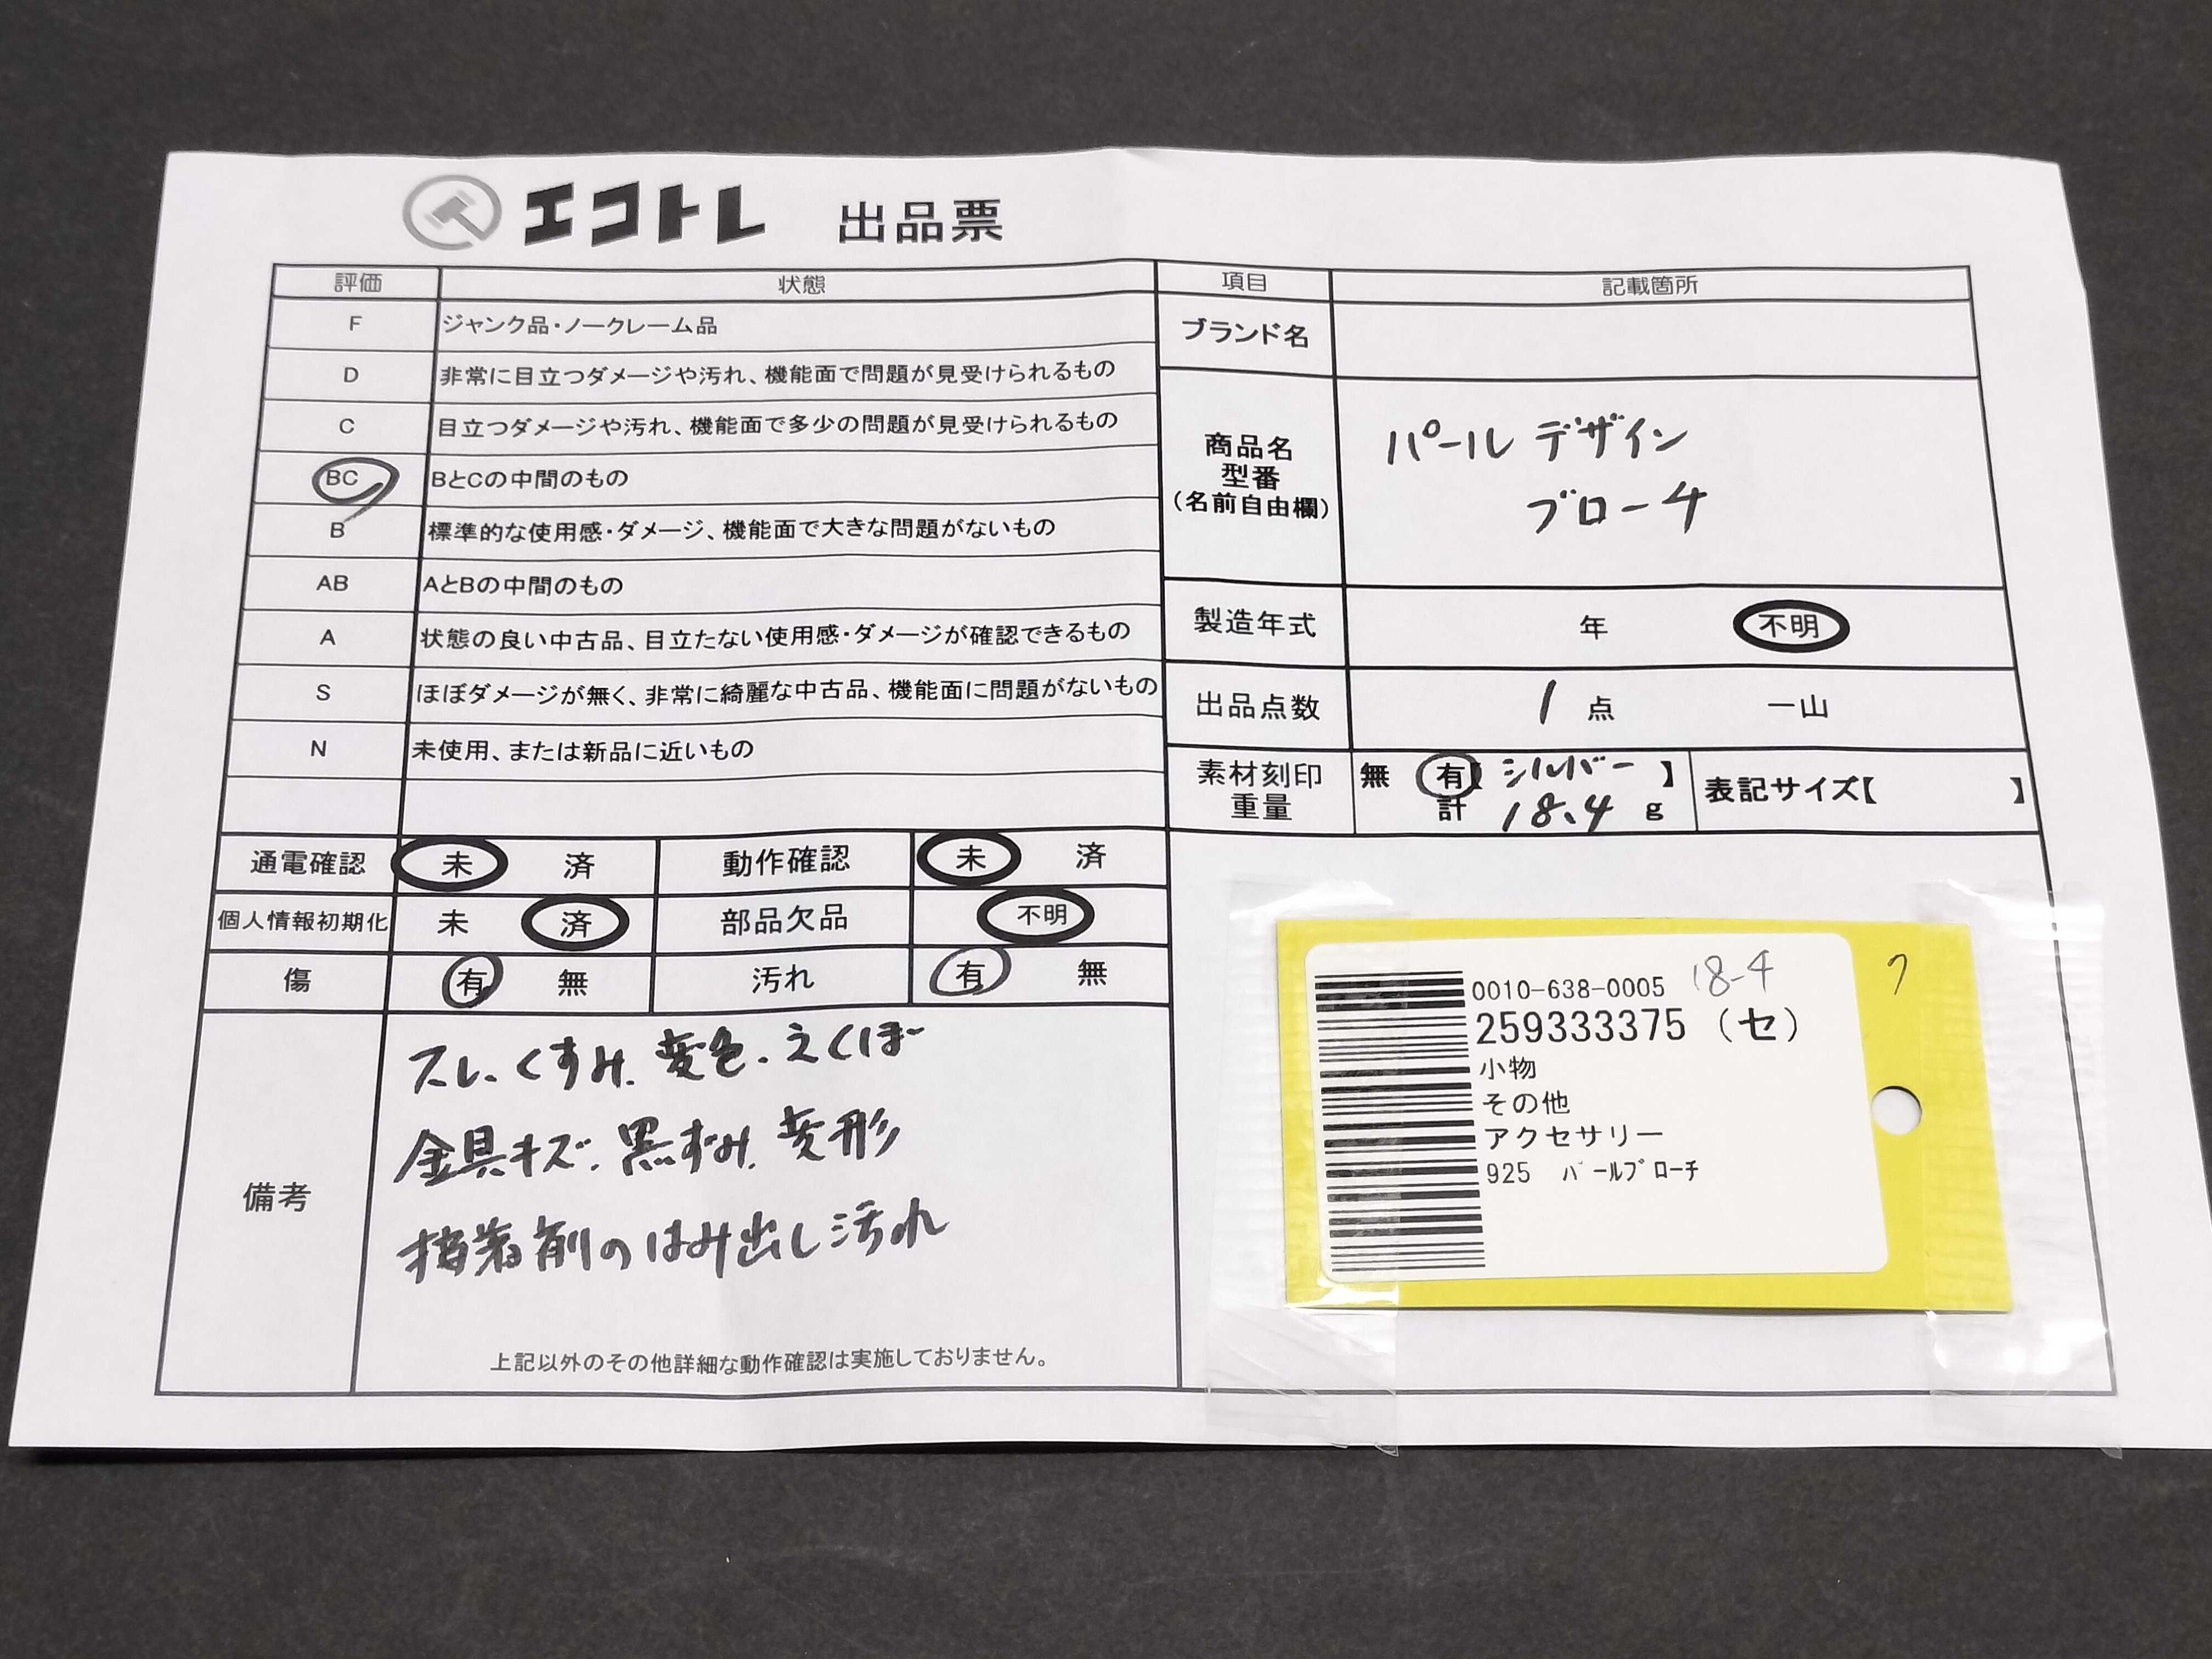 エコトレ 出品票
評価 状態
F ジャンク品・ノークレーム品
D 非常に目立つダメージや汚れ、機能面で問題が見受けられるもの
C 目立つダメージや汚れ、機能面で多少の問題が見受けられるもの
BC BとCの中間のもの
B 標準的な使用感・ダメージ、機能面で大きな問題がないもの
AB AとBの中間のもの
A 状態の良い中古品、目立たない使用感・ダメージが確認できるもの
S ほぼダメージが無く、非常に綺麗な中古品、機能面に問題がないもの
N 未使用、または新品に近いもの
通電確認 未 済 動作確認 未 済
個人情報初期化 未 済 部品欠品 不明
傷 有 無 汚れ 有 無
備考
スレ、くすみ、変色、えくぼ
金具キズ、黒ずみ、変形
接着剤のはみ出し汚れ
上記以外のその他詳細な動作確認は実施しておりません。
項目 記載箇所
ブランド名
商品名
型番
(名前自由欄)
パールデザイン
ブローチ
製造年式 年 不明
出品点数 1 点 一山
素材刻印 無 有【シルバー】 表記サイズ【 】
重量 計 18.4 g
0010-638-0005 18-4 7
259333375 (セ)
小物
その他
アクセサリー
925 パールブローチ